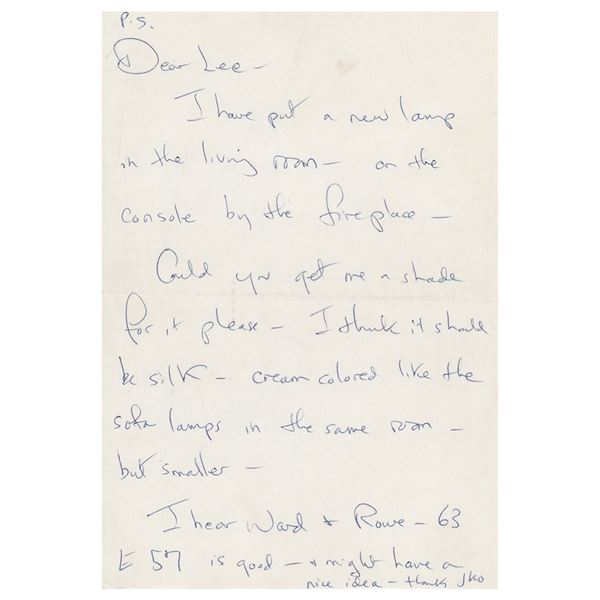 P.S.
Dear Lee -
I have put a new lamp
in the living room - on the
console by the fireplace -
Could you get me a shade
for it please - I think it should
be silk - cream colored like the
sofa lamps in the same room -
but smaller -
I hear Ward + Rowe - 63
E 57 is good - + might have a
nice idea - thanks JKO